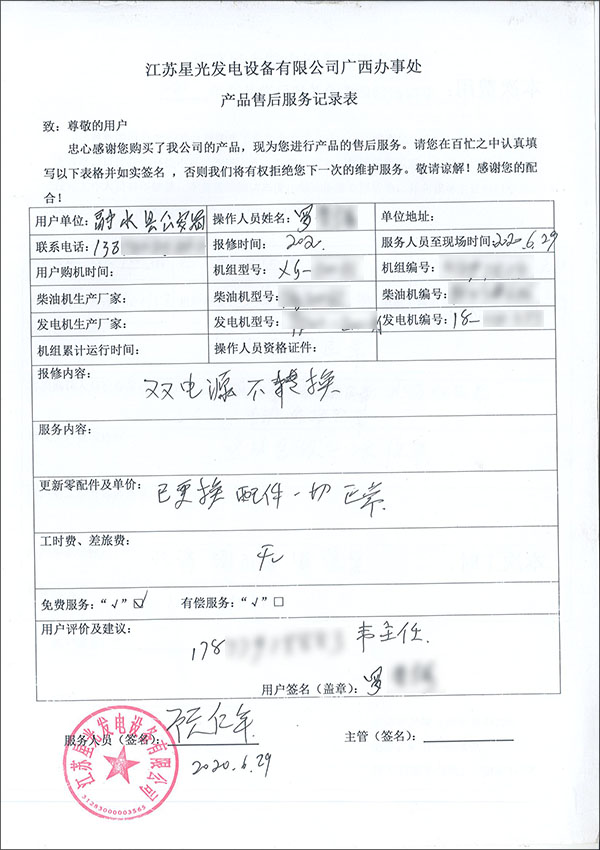 江苏星光发电设备有限公司广西办事处
产品售后服务记录表
致：尊敬的用户
忠心感谢您购买了我公司的产品，现为您进行产品的售后服务。请您在百忙之中认真填
写以下表格并如实签名，否则我们将有权拒绝您下一次的维护服务。敬请谅解！感谢您的配
合！
用户单位：融水县公安局 操作人员姓名：罗 单位地址：
联系电话：138 报修时间：202 服务人员至现场时间：2020.6.29
用户购机时间： 机组型号：XG- 机组编号：
柴油机生产厂家： 柴油机型号： 柴油机编号：
发电机生产厂家： 发电机型号： 发电机编号：18-
机组累计运行时间： 操作人员资格证件：
报修内容：
双电源不转换
服务内容：
更新零配件及单价：已更换配件一切正常
工时费、差旅费：
无
免费服务：“√”☑ 有偿服务：“√”□
用户评价及建议：
178 韦主任.
用户签名（盖章）：罗
服务人员（签名）： 主管（签名）：
2020.6.29
江苏星光发电设备有限公司
31283000003565